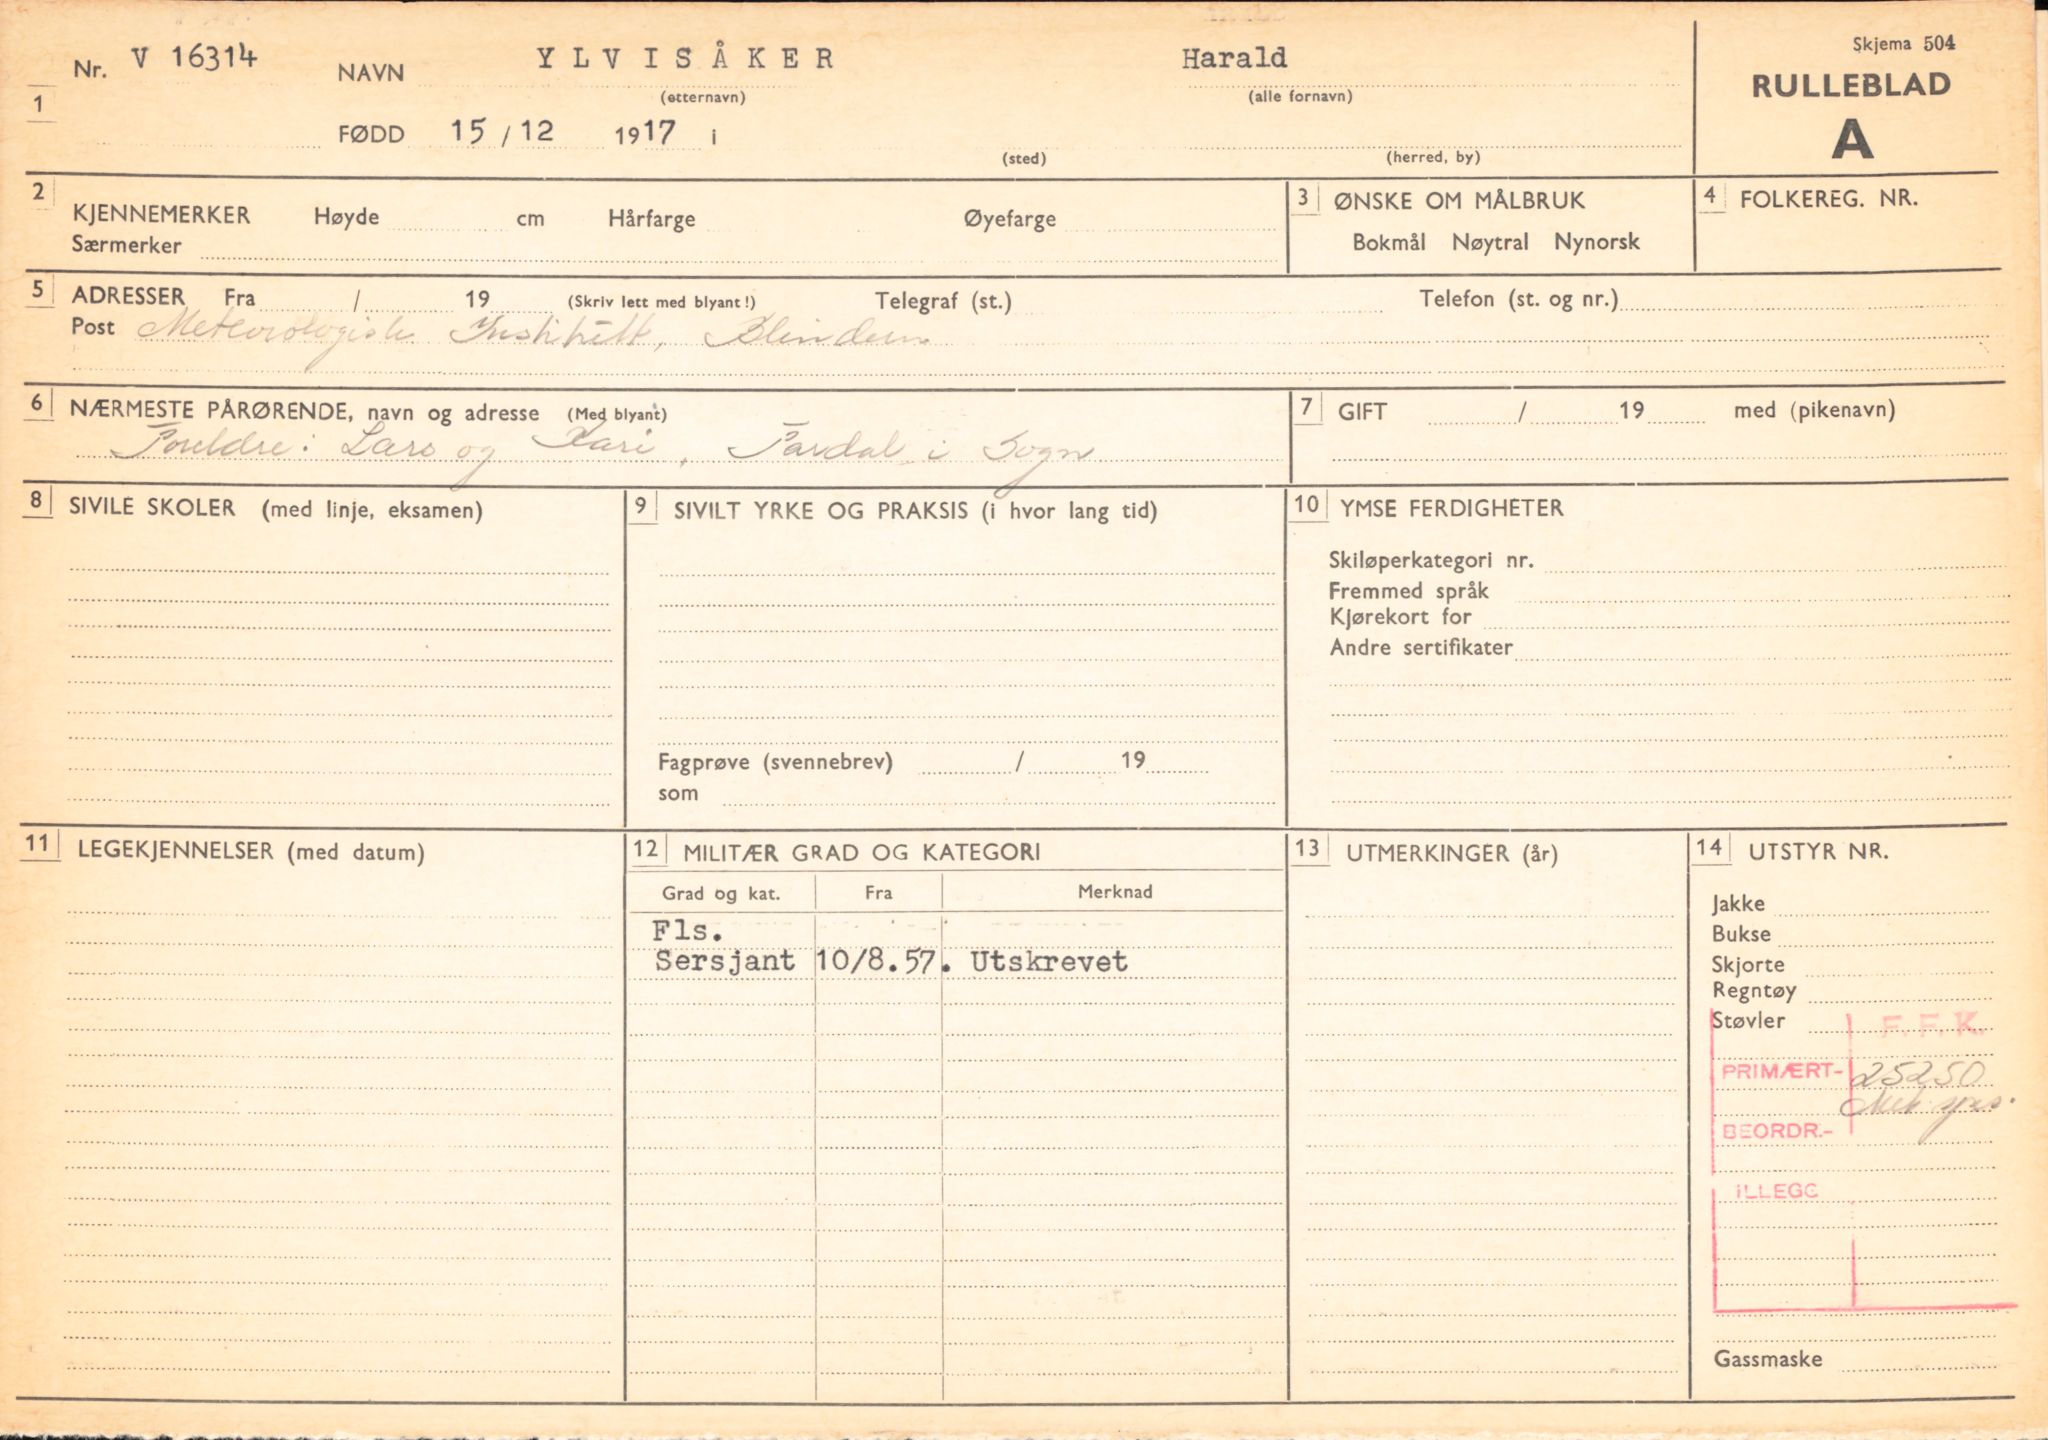 Skjema 504
Nr. V 16314 NAVN YLVISÅKER Harald
(etternavn) (alle fornavn)
RULLEBLAD
A
1
FØDD 15 / 12 1917 i
(sted) (herred, by)
2 KJENNEMERKER Høyde cm Hårfarge Øyefarge
Særmerker
3 ØNSKE OM MÅLBRUK
Bokmål Nøytral Nynorsk
4 FOLKEREG. NR.
5 ADRESSER Fra / 19 (Skriv lett med blyant!) Telegraf (st.) Telefon (st. og nr.)
Post Meteorologisk Institutt, Blindern
6 NÆRMESTE PÅRØRENDE, navn og adresse (Med blyant)
Foreldre: Lars og Kari, i Sogn
7 GIFT / 19 med (pikenavn)
8 SIVILE SKOLER (med linje, eksamen)
9 SIVILT YRKE OG PRAKSIS (i hvor lang tid)
Fagprøve (svennebrev) / 19
som
10 YMSE FERDIGHETER
Skiløperkategori nr.
Fremmed språk
Kjørekort for
Andre sertifikater
11 LEGEKJENNELSER (med datum)
12 MILITÆR GRAD OG KATEGORI
Grad og kat. Fra Merknad
Fls.
Sersjant 10/8.57. Utskrevet
13 UTMERKINGER (år)
14 UTSTYR NR.
Jakke
Bukse
Skjorte
Regntøy
Støvler
F.F.K.
PRIMÆRT- 25250
BEORDR.-
ILLEGG
Gassmaske